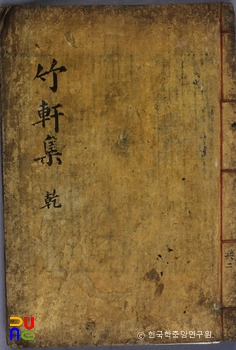 竹軒集 乾
共二
© 한국학중앙연구원